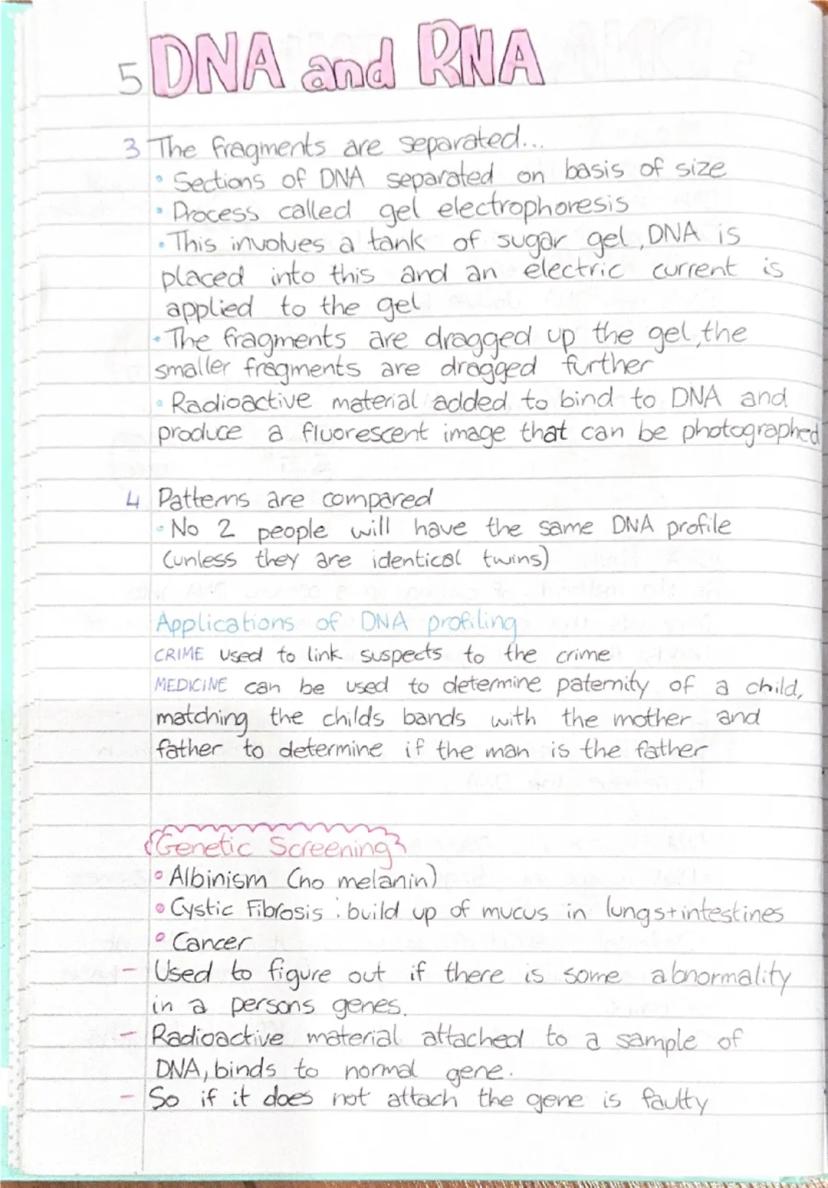 5 DNA and RNA
3 The fragments are separated...
• Sections of DNA separated on basis of size
• Process called gel electrophoresis
• This involves a tank of sugar gel, DNA is
placed into this and an electric current is
applied to the gel
• The fragments are dragged up the gel, the
smaller fragments are dragged further
• Radioactive material added to bind to DNA and
produce a fluorescent image that can be photographed
4 Patterns are compared
• No 2 people will have the same DNA profile
(unless they are identical twins)
Applications of DNA profiling
CRIME used to link suspects to the crime
MEDICINE can be used to determine paternity of a child,
matching the childs bands with the mother and
father to determine if the man is the father
Genetic Screening
• Albinism (no melanin)
• Cystic Fibrosis : build up of mucus in lungs + intestines
• Cancer
- Used to figure out if there is some abnormality
in a persons genes.
- Radioactive material attached to a sample of
DNA, binds to normal gene.
- So if it does not attach the gene is faulty